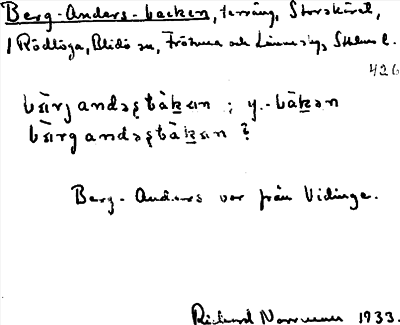 Berg-Anders-backen, terräng, Storskäret,
/ Rödlöga, Blidö sn, Frötuna och Länna skg, Sthlms l.
426
bärj andəʂbàkan ; y. -bàkən
bärg andəʂbàkan ?
Berg-Anders var från Vidinge.
Richard 1933.